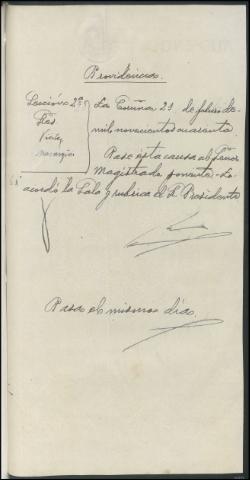 Providencia.
Sección 2ª
Sres
La Coruña 21 de febrero de
mil novecientos cuarenta
Pase esta causa al Señor
Magistrado ponente. Lo
acordó la Sala y rubrica el Sr. Presidente
Pasa el mismo día.